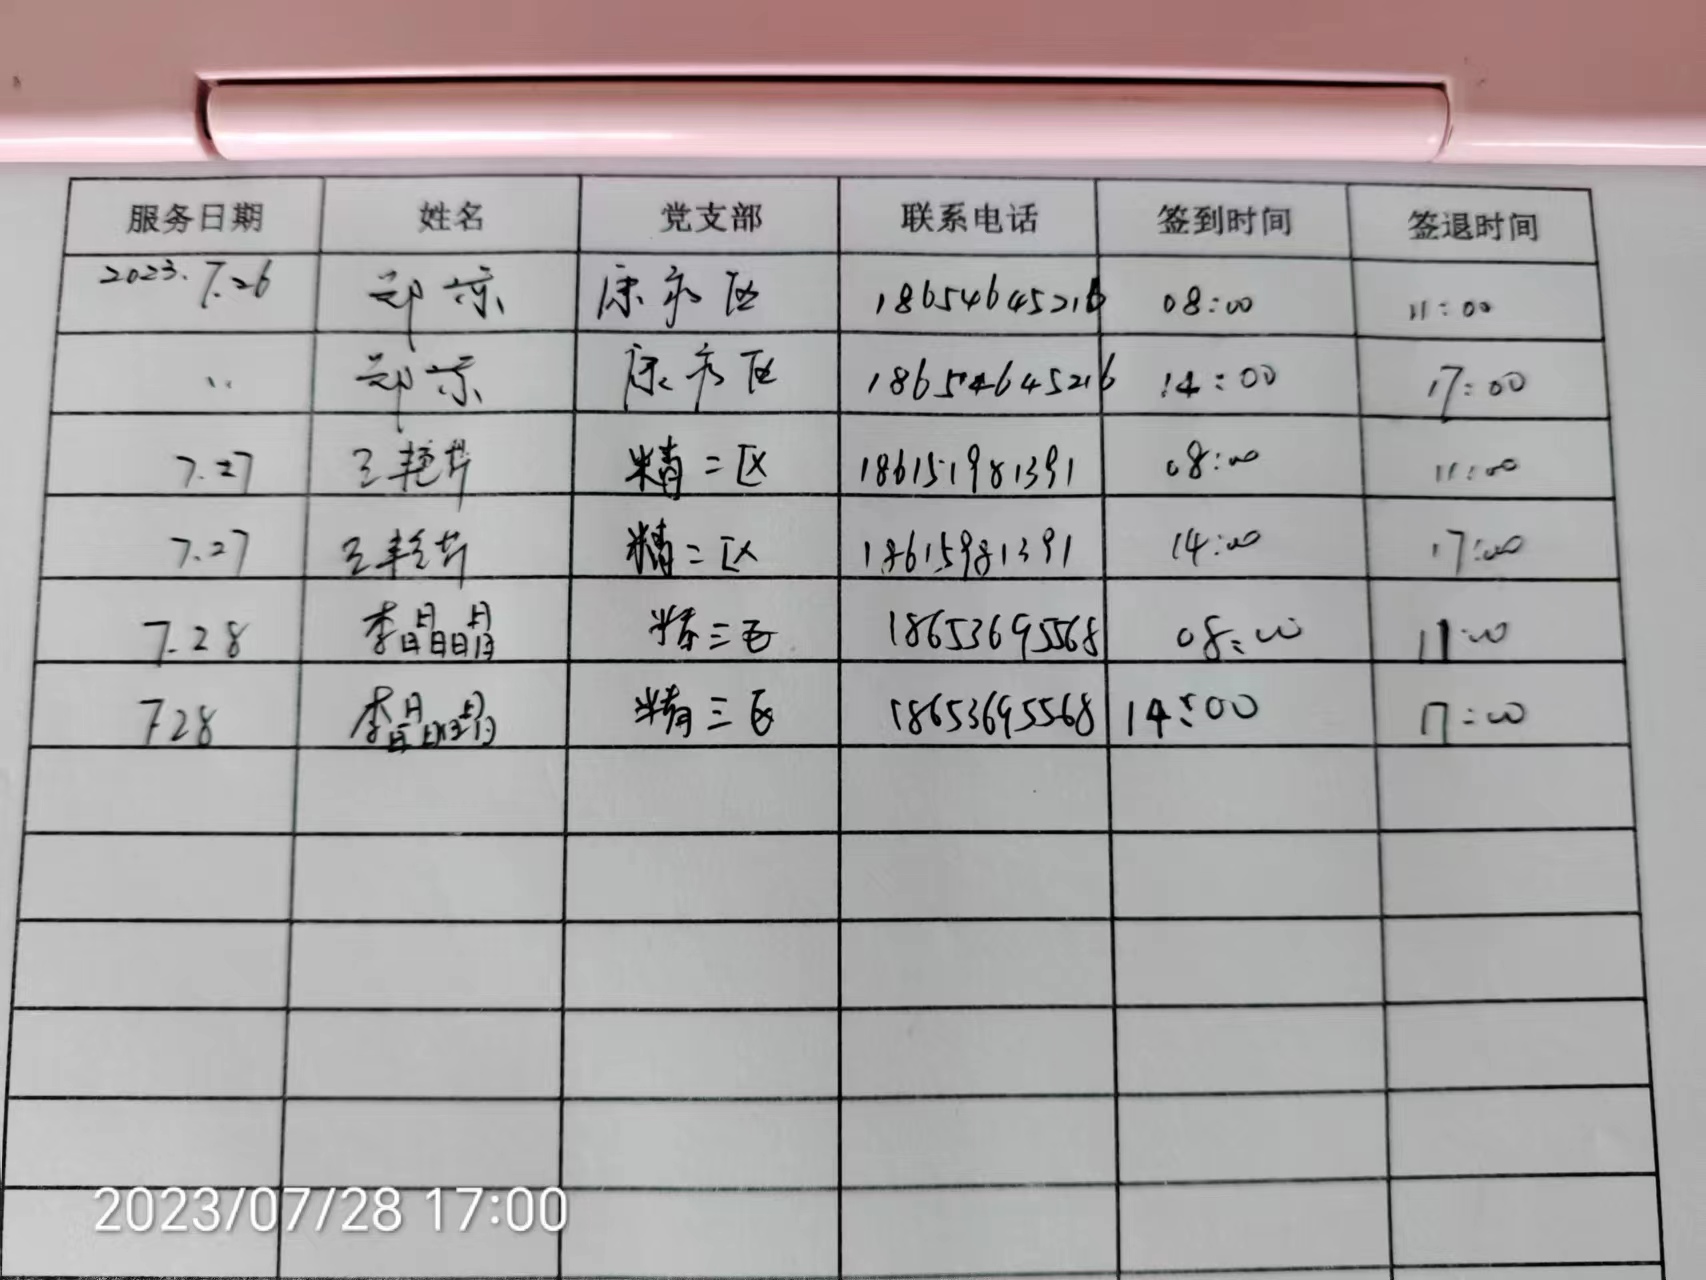 服务日期 姓名 党支部 联系电话 签到时间 签退时间
2023.7.26 郑京 康系区 18654645216 08:00 11:00
〃 郑京 康系区 18654645216 14:00 17:00
7.27 王艳 精二区 186151981391 08:00 11:00
7.27 王艳 精二区 18615981391 14:00 17:00
7.28 李晶晶 精三区 18653695568 08:00 11:00
7.28 李晶晶 精三区 18653695568 14:00 17:00
2023/07/28 17:00